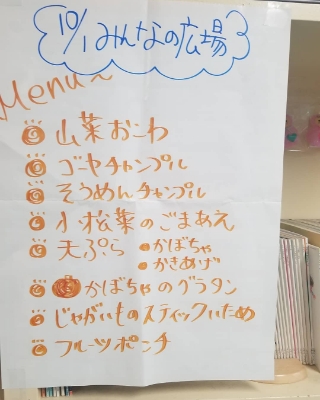 10/1 みんなの広場
Menu～
山菜おこわ
ゴーヤチャンプル
そうめんチャンプル
小松菜のごまあえ
天ぷら ●かぼちゃ
●かきあげ
かぼちゃのグラタン
じゃがいものスティックいため
フルーツポンチ